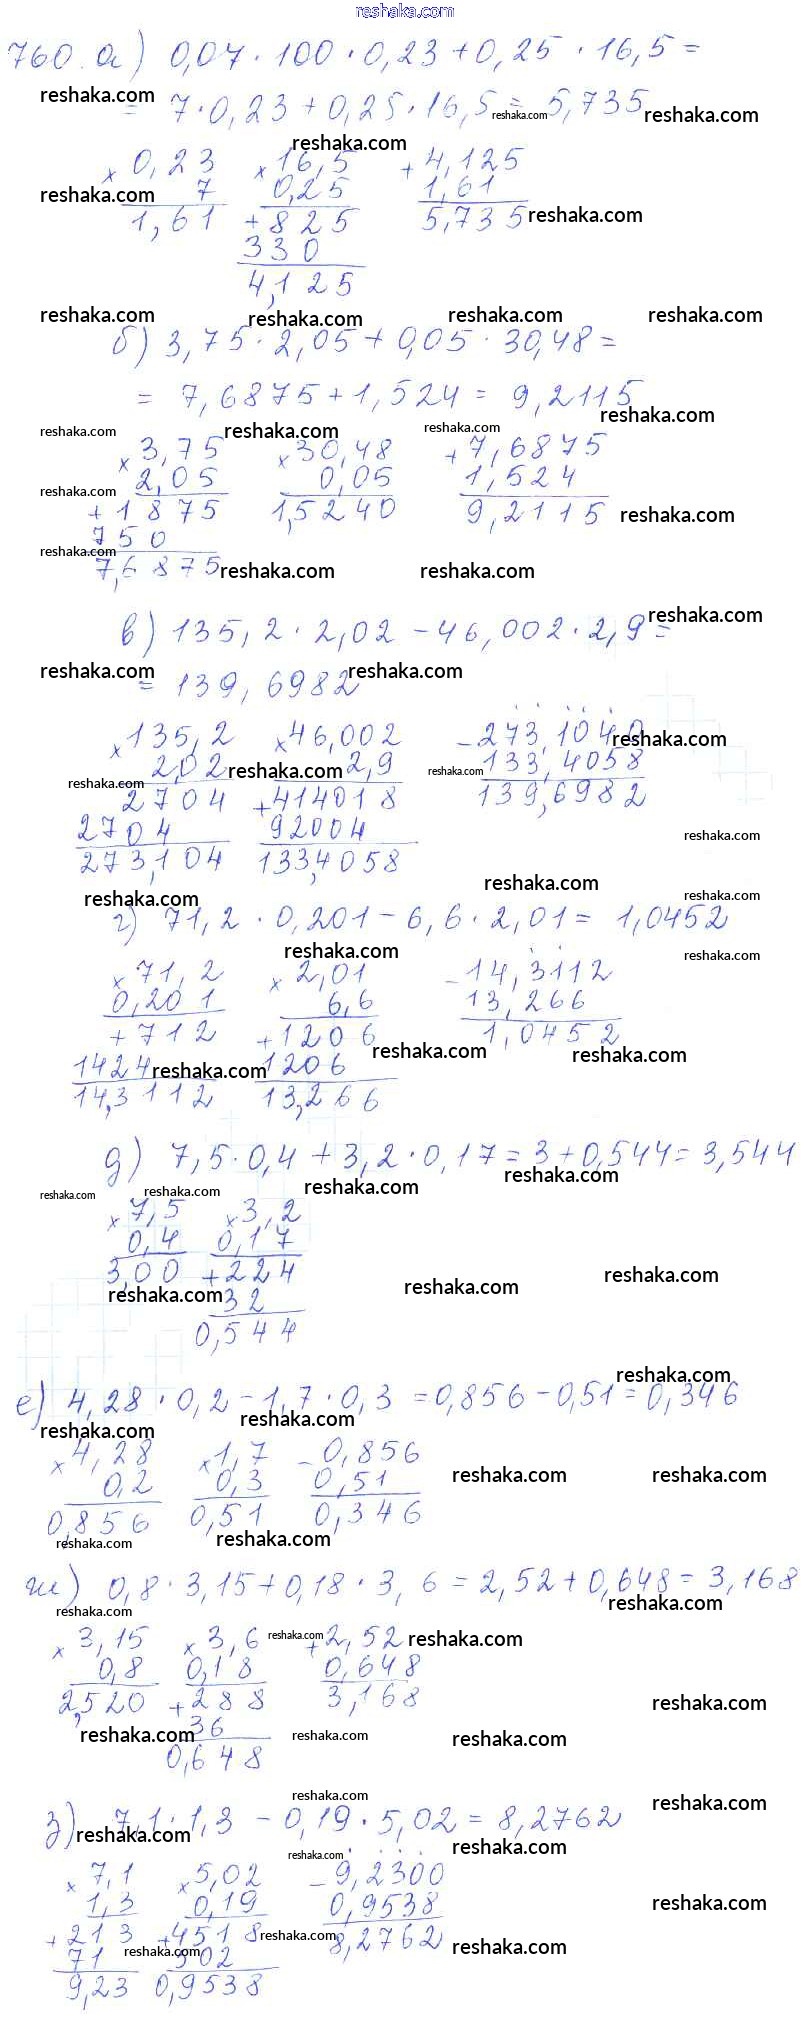 reshaka.com
760. а) 0,07 · 100 · 0,23 + 0,25 · 16,5 =
= 7 · 0,23 + 0,25 · 16,5 = 5,735
reshaka.com reshaka.com reshaka.com
reshaka.com
× 0,23 × 16,5 + 4,125
7 0,25 1,61
reshaka.com
1,61 + 825 5,735 reshaka.com
330
4,125
reshaka.com reshaka.com reshaka.com reshaka.com
б) 3,75 · 2,05 + 0,05 · 30,48 =
= 7,6875 + 1,524 = 9,2115
reshaka.com
reshaka.com reshaka.com reshaka.com
× 3,75 × 30,48 + 7,6875
2,05 0,05 1,524
reshaka.com
+ 1875 1,5240 9,2115 reshaka.com
750
reshaka.com
7,6875 reshaka.com reshaka.com
reshaka.com
в) 135,2 · 2,02 - 46,002 · 2,9 =
= 139,6982
reshaka.com reshaka.com
× 135,2 × 46,002 - 273,1040
reshaka.com
2,02 2,9 133,4058
reshaka.com reshaka.com reshaka.com
2704 + 414018 139,6982
2704 92004
reshaka.com
273,104 133,4058
reshaka.com reshaka.com reshaka.com
г) 71,2 · 0,201 - 6,6 · 2,01 = 1,0452
reshaka.com reshaka.com
× 71,2 × 2,01 - 14,3112
0,201 6,6 13,266
+ 712 + 1206 1,0452
reshaka.com reshaka.com
1424 1206
reshaka.com
14,3112 13,266
д) 7,5 · 0,4 + 3,2 · 0,17 = 3 + 0,544 = 3,544
reshaka.com reshaka.com reshaka.com reshaka.com
× 7,5 × 3,2
0,4 0,17
3,00 + 224
reshaka.com reshaka.com reshaka.com
32
0,544
reshaka.com
е) 4,28 · 0,2 - 1,7 · 0,3 = 0,856 - 0,51 = 0,346
reshaka.com reshaka.com
× 4,28 × 1,7 - 0,856
0,2 0,3 0,51
reshaka.com reshaka.com
0,856 0,51 0,346
reshaka.com reshaka.com
ж) 0,8 · 3,15 + 0,18 · 3,6 = 2,52 + 0,648 = 3,168
reshaka.com reshaka.com
× 3,15 × 3,6 + 2,52
reshaka.com reshaka.com
0,8 0,18 0,648
2,520 + 288 3,168
reshaka.com
36
reshaka.com reshaka.com reshaka.com
0,648
reshaka.com reshaka.com
з) 7,1 · 1,3 - 0,19 · 5,02 = 8,2762
reshaka.com reshaka.com reshaka.com
× 7,1 × 5,02 - 9,2300
1,3 0,19 0,9538
reshaka.com
+ 213 + 4518 8,2762
reshaka.com
71 502
reshaka.com reshaka.com
9,23 0,9538